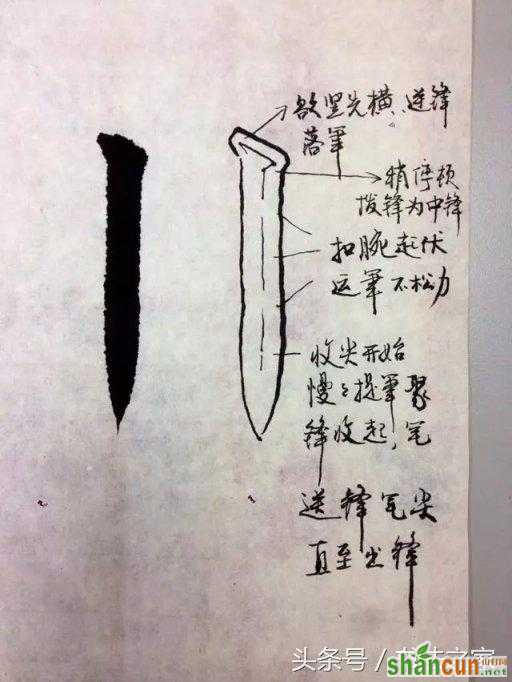 欲竖先横,逆锋
落笔
稍停顿
拨锋为中锋
扣腕起伏
运笔不松力
收尖开始
慢々提笔聚
锋收起,笔
送锋笔尖
直至出锋
头条号/书法之家
shancun
山村网
.net